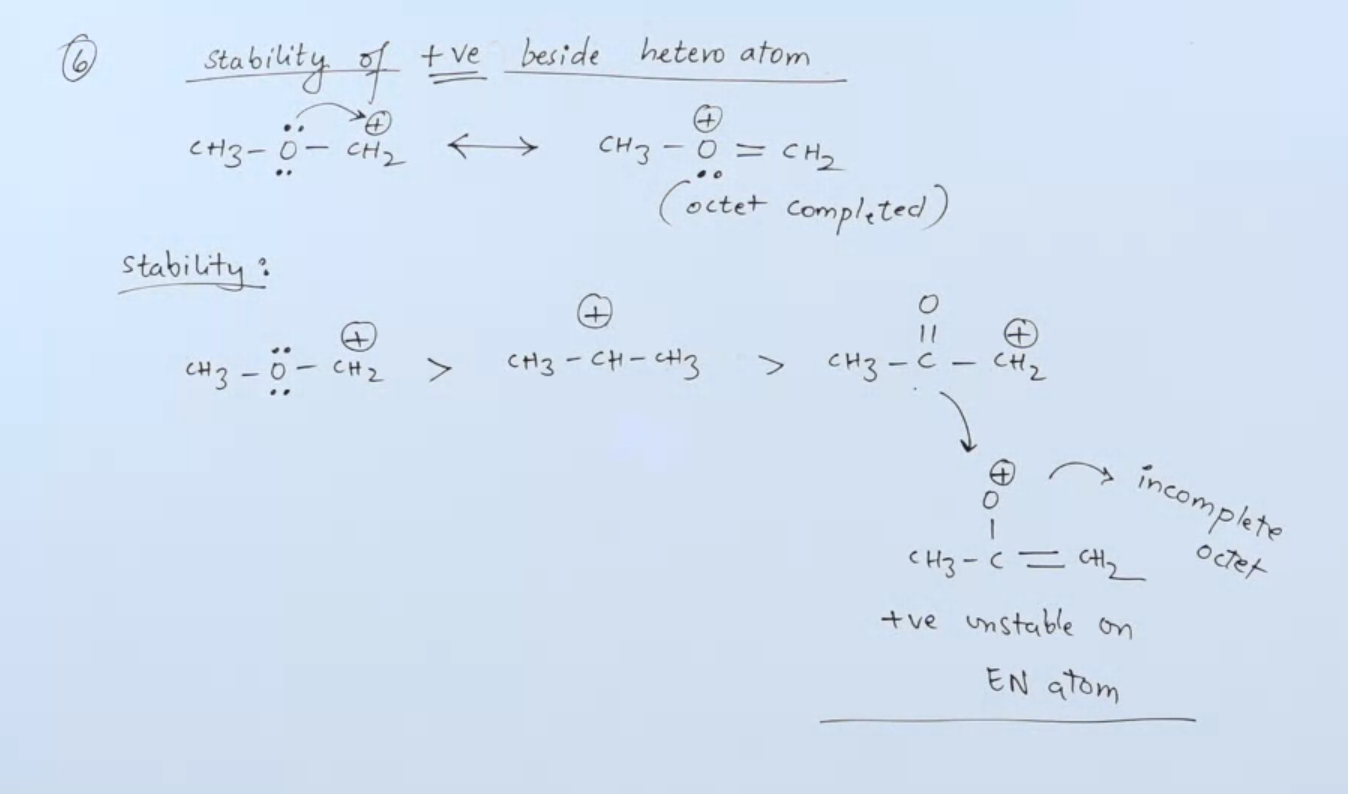 ⑥ stability of +ve beside hetero atom
CH3-Ö-CH2⊕ ⟷ CH3-O⊕=CH2
(octet completed)
stability:
CH3-Ö-CH2⊕ > CH3-CH⊕-CH3 > CH3-C(=O)-CH2⊕
⊕
O
incomplete
octet
CH3-C=CH2
+ve unstable on
EN atom